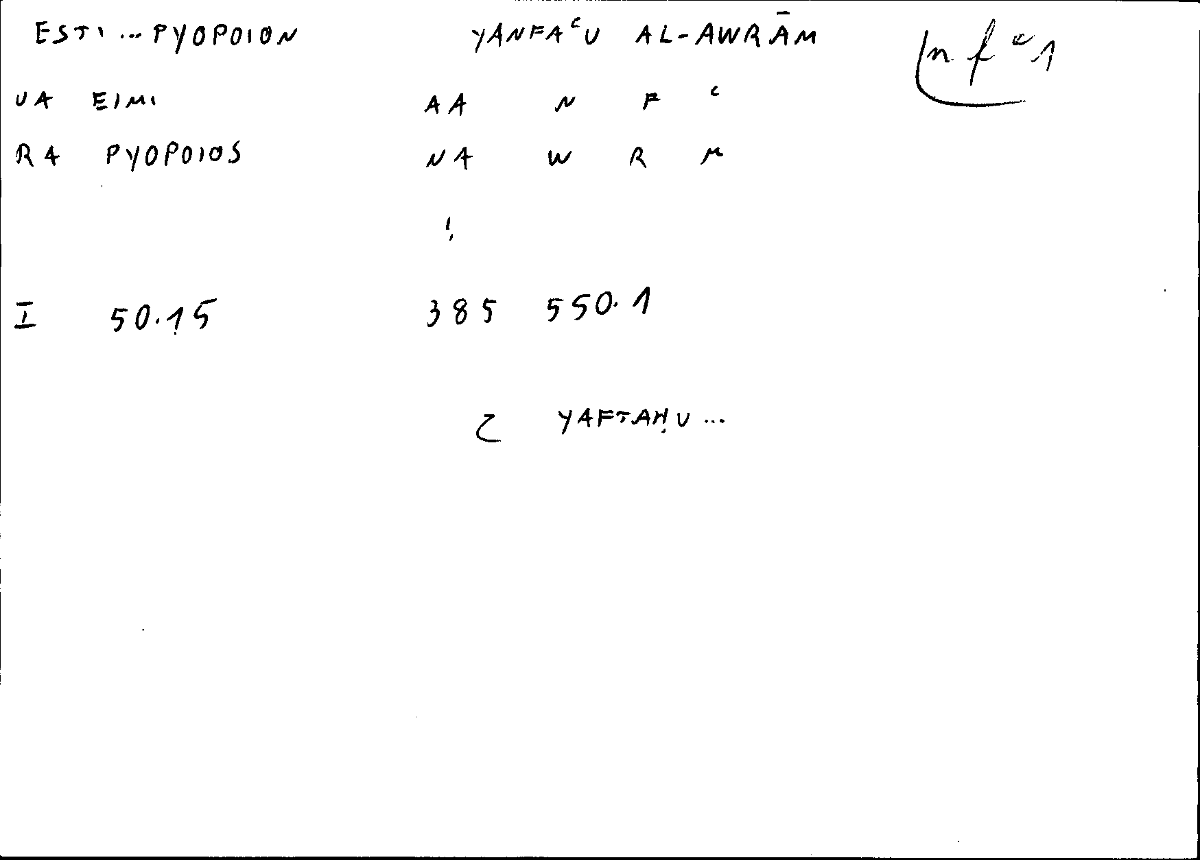 ESTI ... PYOPOION YANFAᶜU AL-AWRĀM nfᶜ1
VA EIMI AA N F ᶜ
RA PYOPOIOS NA W R M
!
I 50.15 385 550.1
YAFTAḤU ...